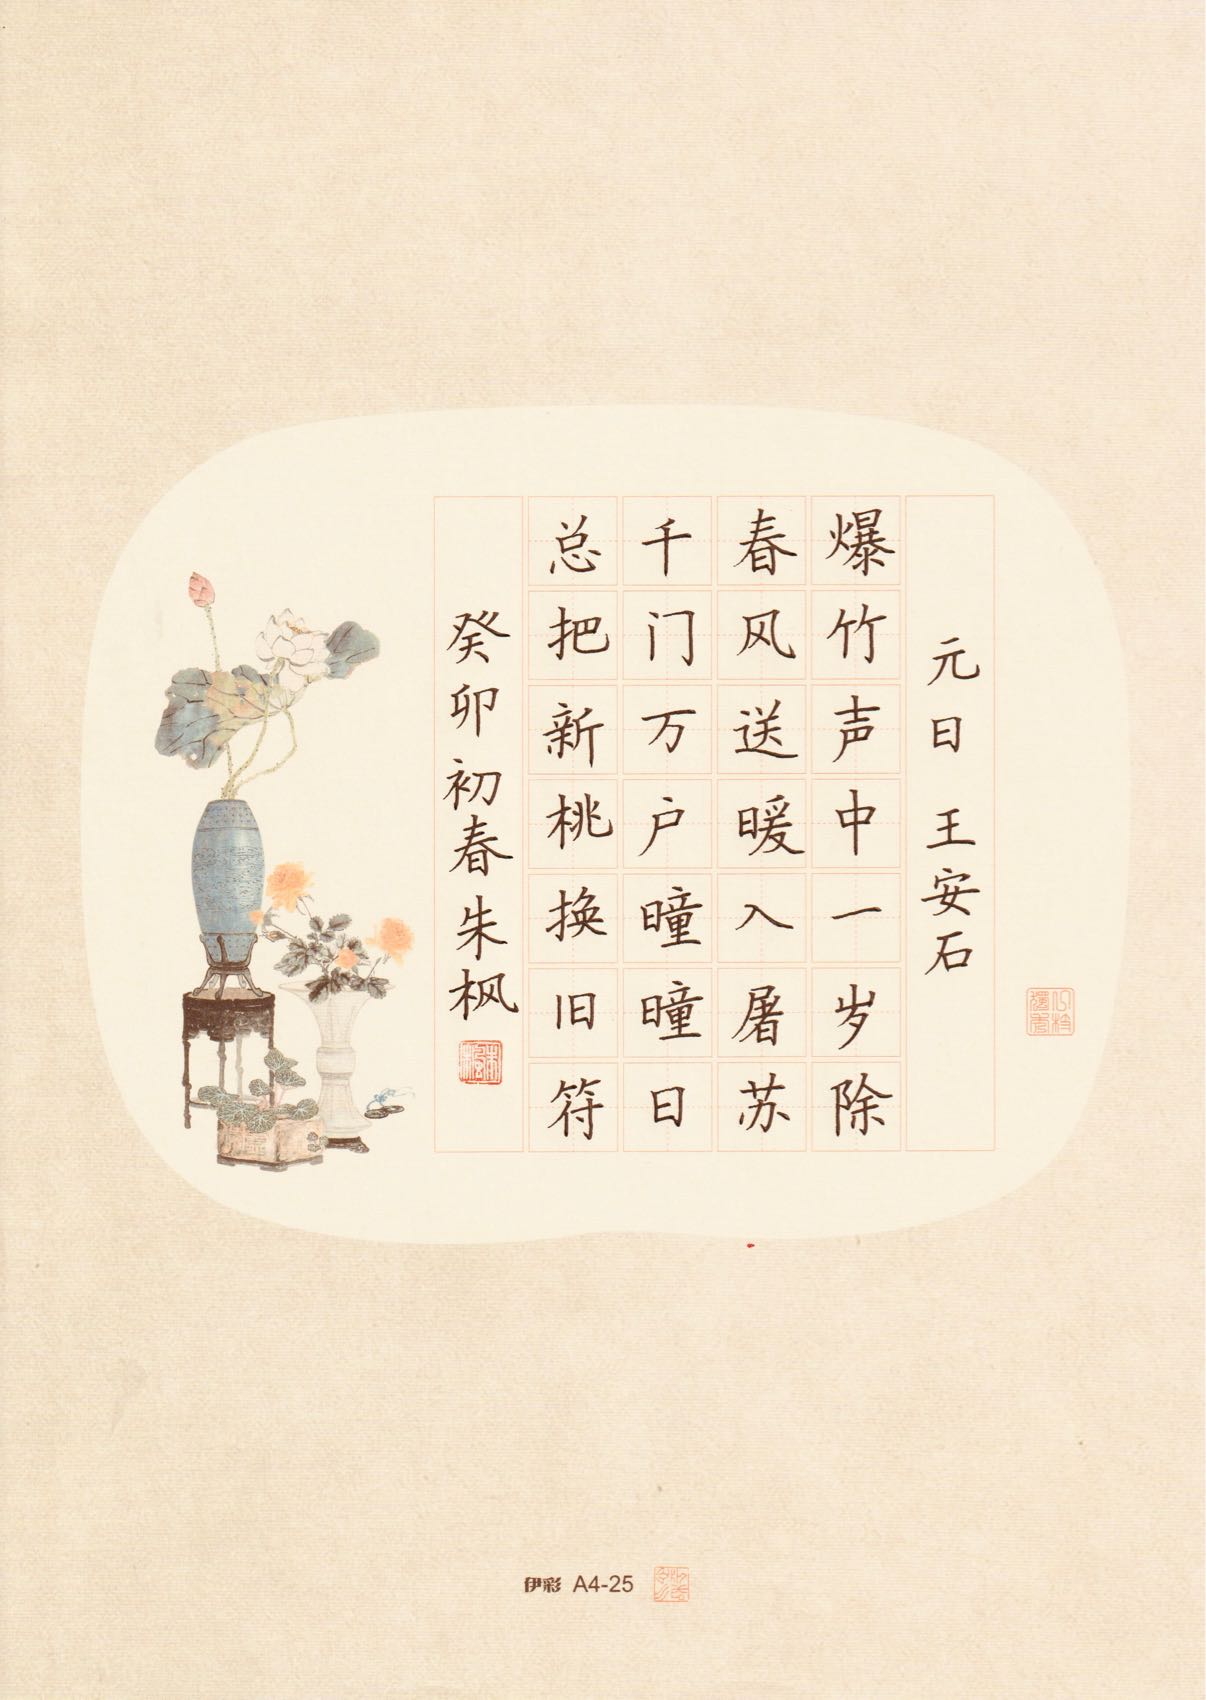 元日 王安石
爆竹声中一岁除
春风送暖入屠苏
千门万户曈曈日
总把新桃换旧符
癸卯初春朱枫
朱枫
伊彩 A4-25